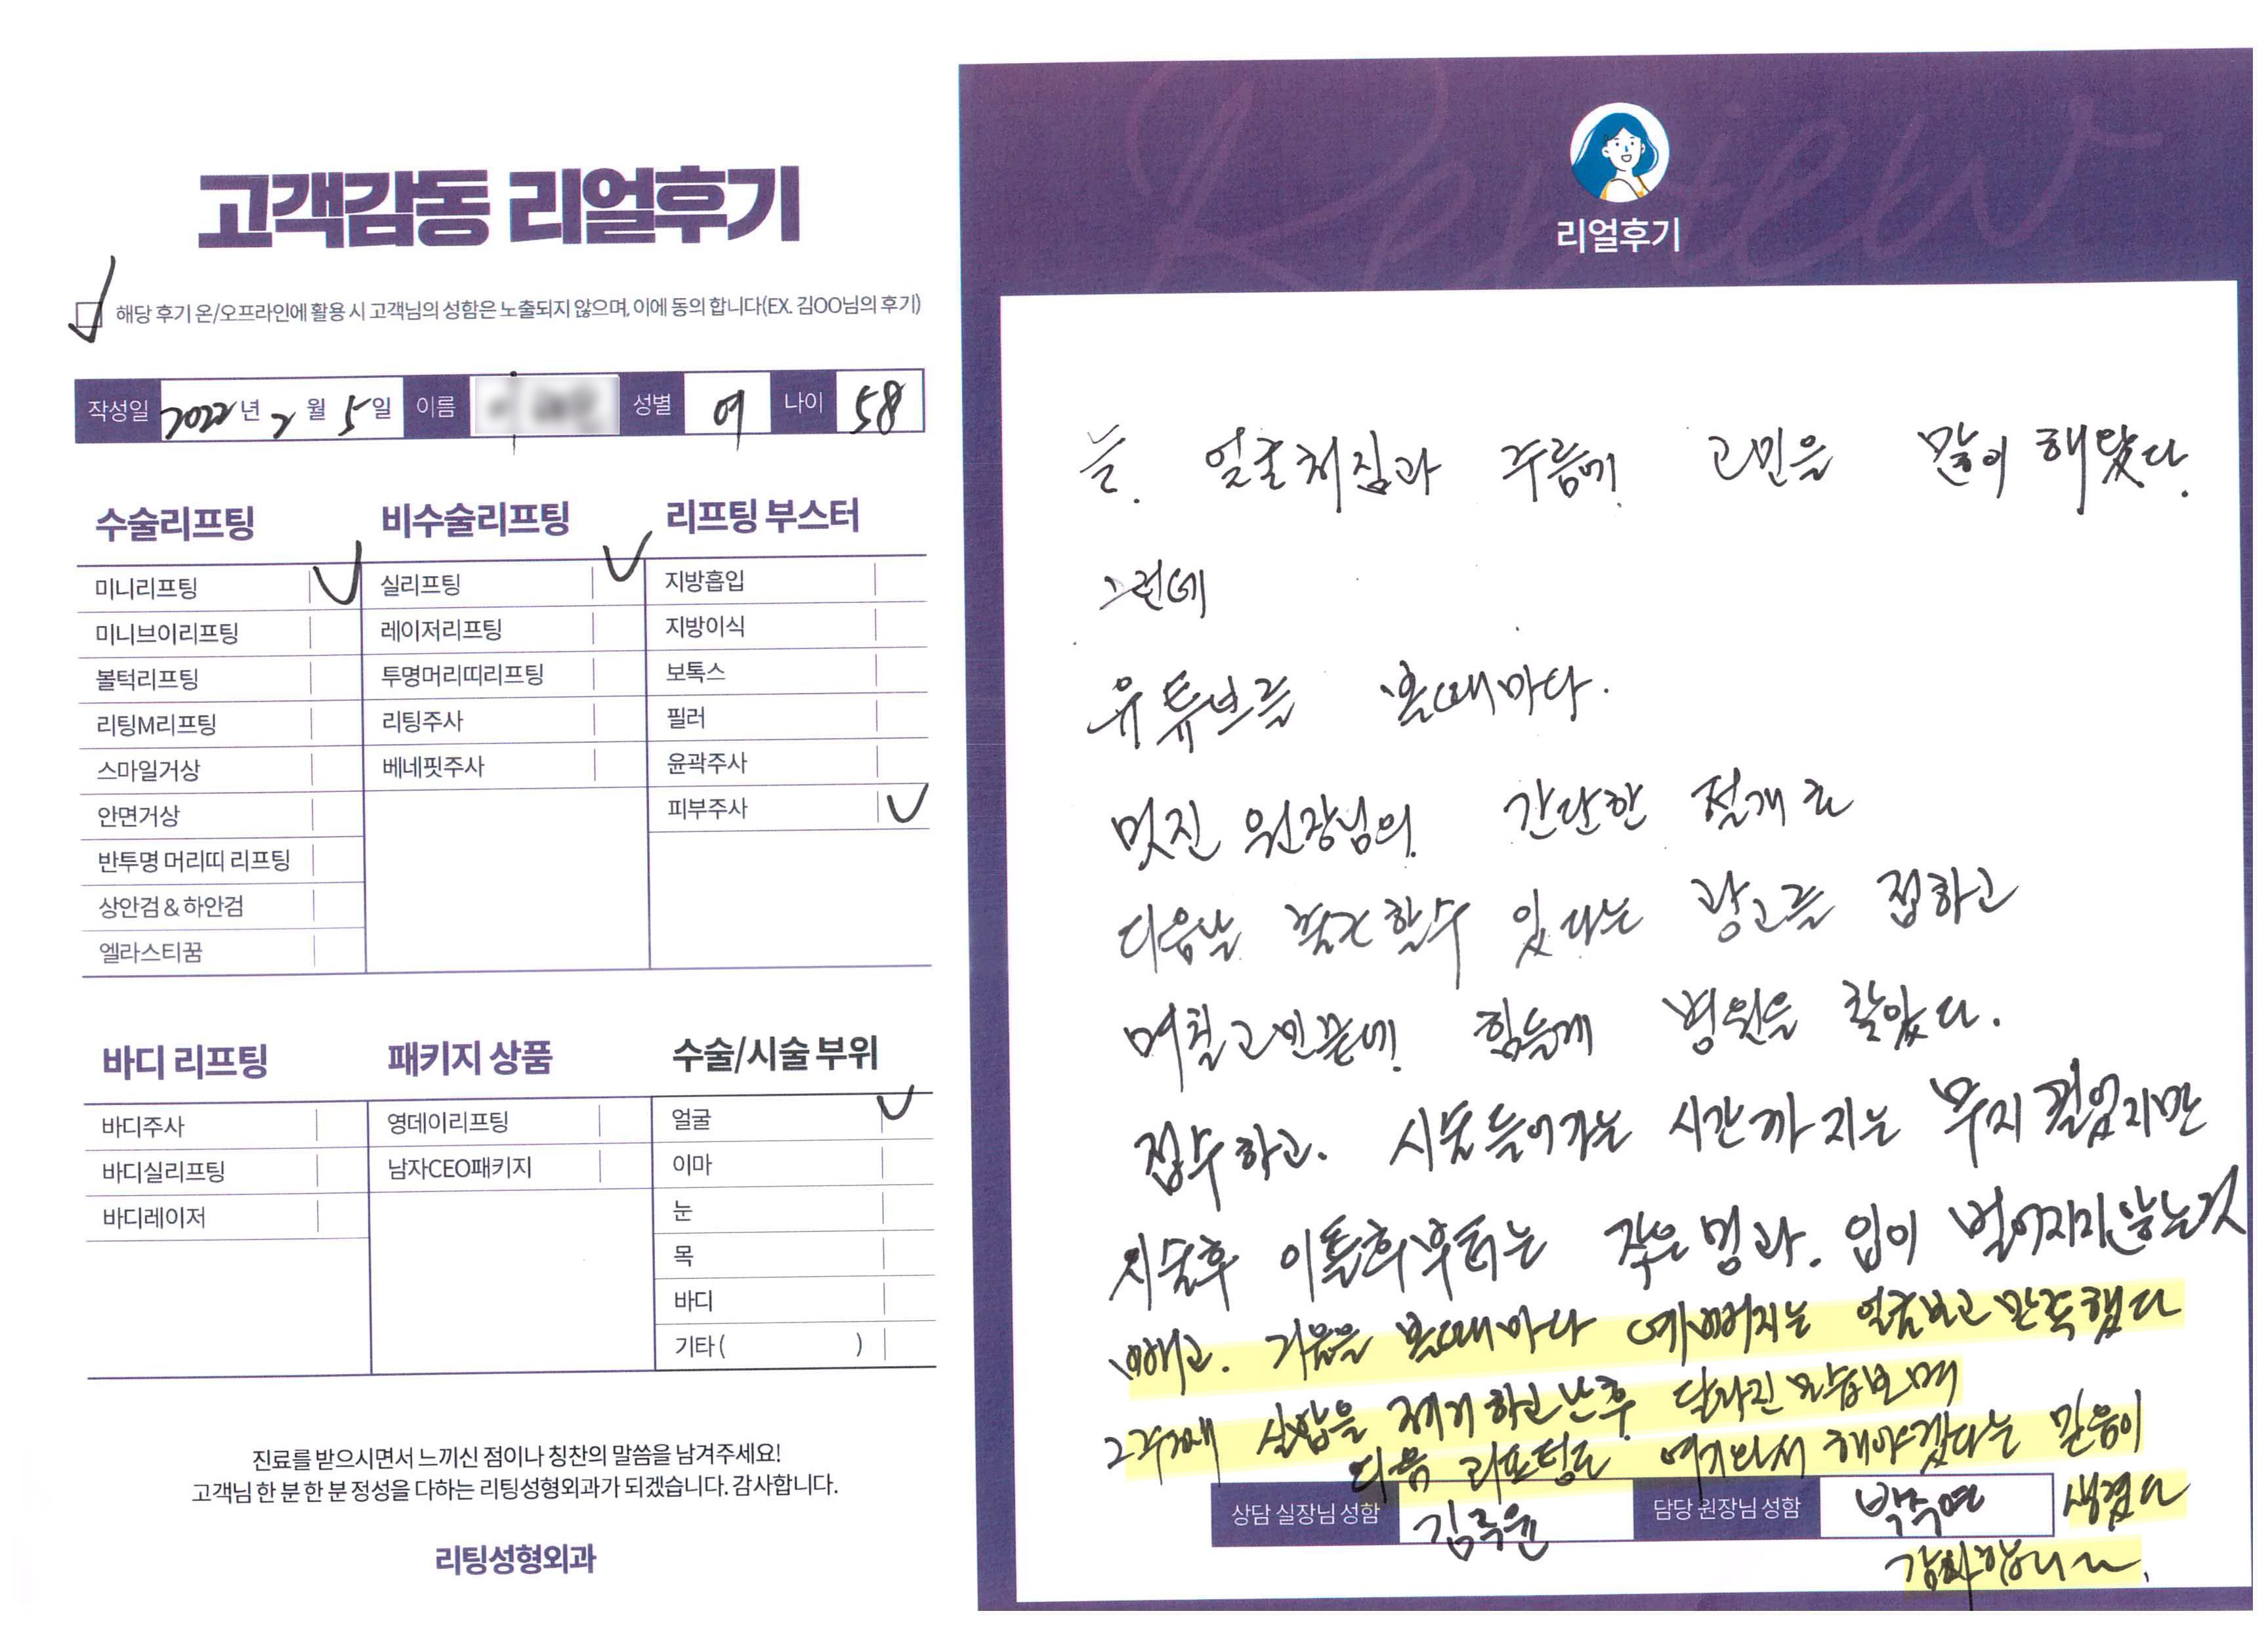 고객감동 리얼후기
해당 후기 온/오프라인에 활용 시 고객님의 성함은 노출되지 않으며, 이에 동의 합니다(EX. 김OO님의 후기)
작성일 2022년 2월 5일 이름 성별 여 나이 58
수술리프팅
미니리프팅
미니브이리프팅
볼턱리프팅
리팅M리프팅
스마일거상
안면거상
반투명 머리띠 리프팅
상안검 & 하안검
엘라스티꿈
비수술리프팅
실리프팅
레이저리프팅
투명머리띠리프팅
리팅주사
베네핏주사
리프팅 부스터
지방흡입
지방이식
보톡스
필러
윤곽주사
피부주사
바디 리프팅
바디주사
바디실리프팅
바디레이저
패키지 상품
영데이리프팅
남자CEO패키지
수술/시술 부위
얼굴
이마
눈
목
바디
기타 ( )
진료를 받으시면서 느끼신 점이나 칭찬의 말씀을 남겨주세요!
고객님 한 분 한 분 정성을 다하는 리팅성형외과가 되겠습니다. 감사합니다.
리팅성형외과
Review
리얼후기
늘. 얼굴처짐과 주름에 고민을 많이 해왔다.
그런데
유튜브를 볼때마다.
멋진 원장님의 간단한 절개로
다음날 출근할수 있다는 광고를 접하고
며칠고민끝에 힘들게 병원을 찾았다.
접수하고. 시술들어가는 시간까지는 무지 떨었지만
시술후 이틀후부터는 작은멍과. 입이 벌어지지않는것
빼고. 거울을 볼때마다 예뻐지는 얼굴보고 만족했다
2주째 실밥을 제거하고난후 달라진 모습보며
다음 리프팅도 여기와서 해야겠다는 믿음이
생겼다
상담 실장님 성함 김주윤 담당 원장님 성함 박수연
감사합니다.